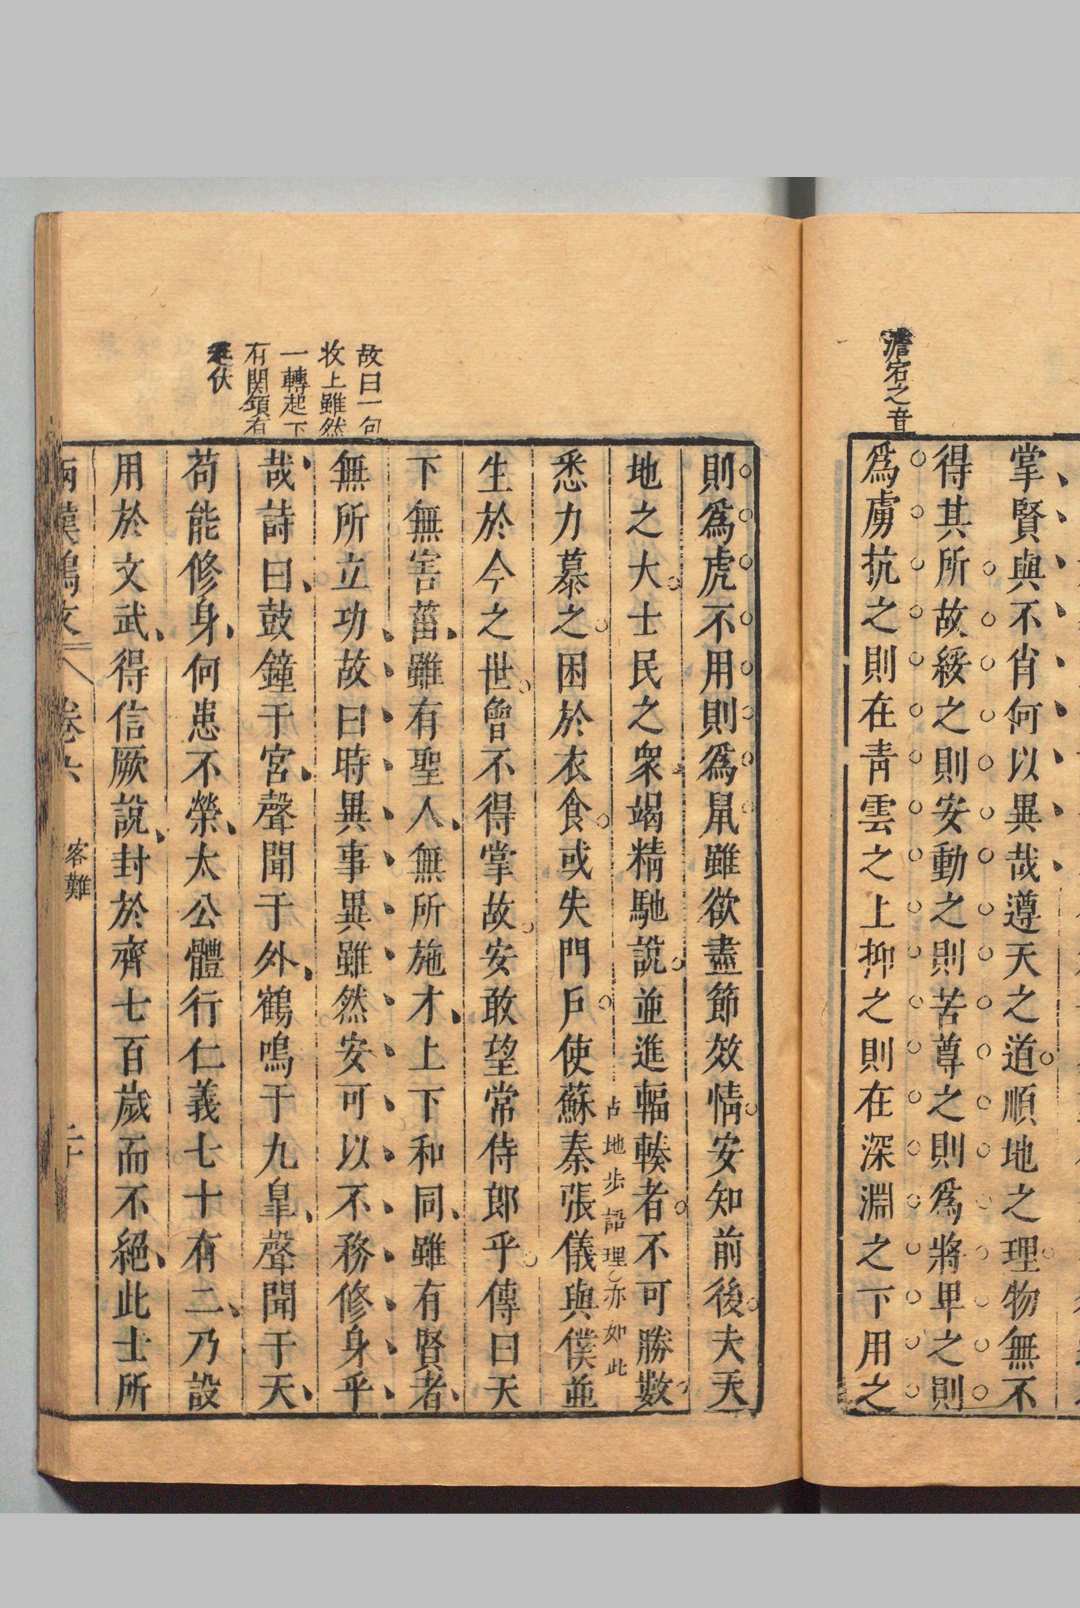 澹宕之音
掌賢與不肖何以異哉遵天之道順地之理物無不
得其所故綏之則安動之則苦尊之則爲將卑之則
爲虜抗之則在靑雲之上抑之則在深淵之下用之
故曰一句
收上雖然
一轉起下
有関鎖有
起伏
則爲虎不用則爲鼠雖欲盡節效情安知前後夫天
地之大士民之衆竭精馳說並進輻輳者不可勝數
占地步語理亦如此
悉力慕之困於衣食或失門戶使蘇秦張儀與僕並
生於今之世曾不得掌故安敢望常侍郎乎傳曰天
下無害菑雖有聖人無所施才上下和同雖有賢者
無所立功故曰時異事異雖然安可以不務修身乎
哉詩曰鼓鐘于宮聲聞于外鶴鳴于九臯聲聞于天
苟能修身何患不榮太公體行仁義七十有二乃設
用於文武得信厥說封於齊七百歲而不絕此士所
兩漢鴻文 卷六 客難